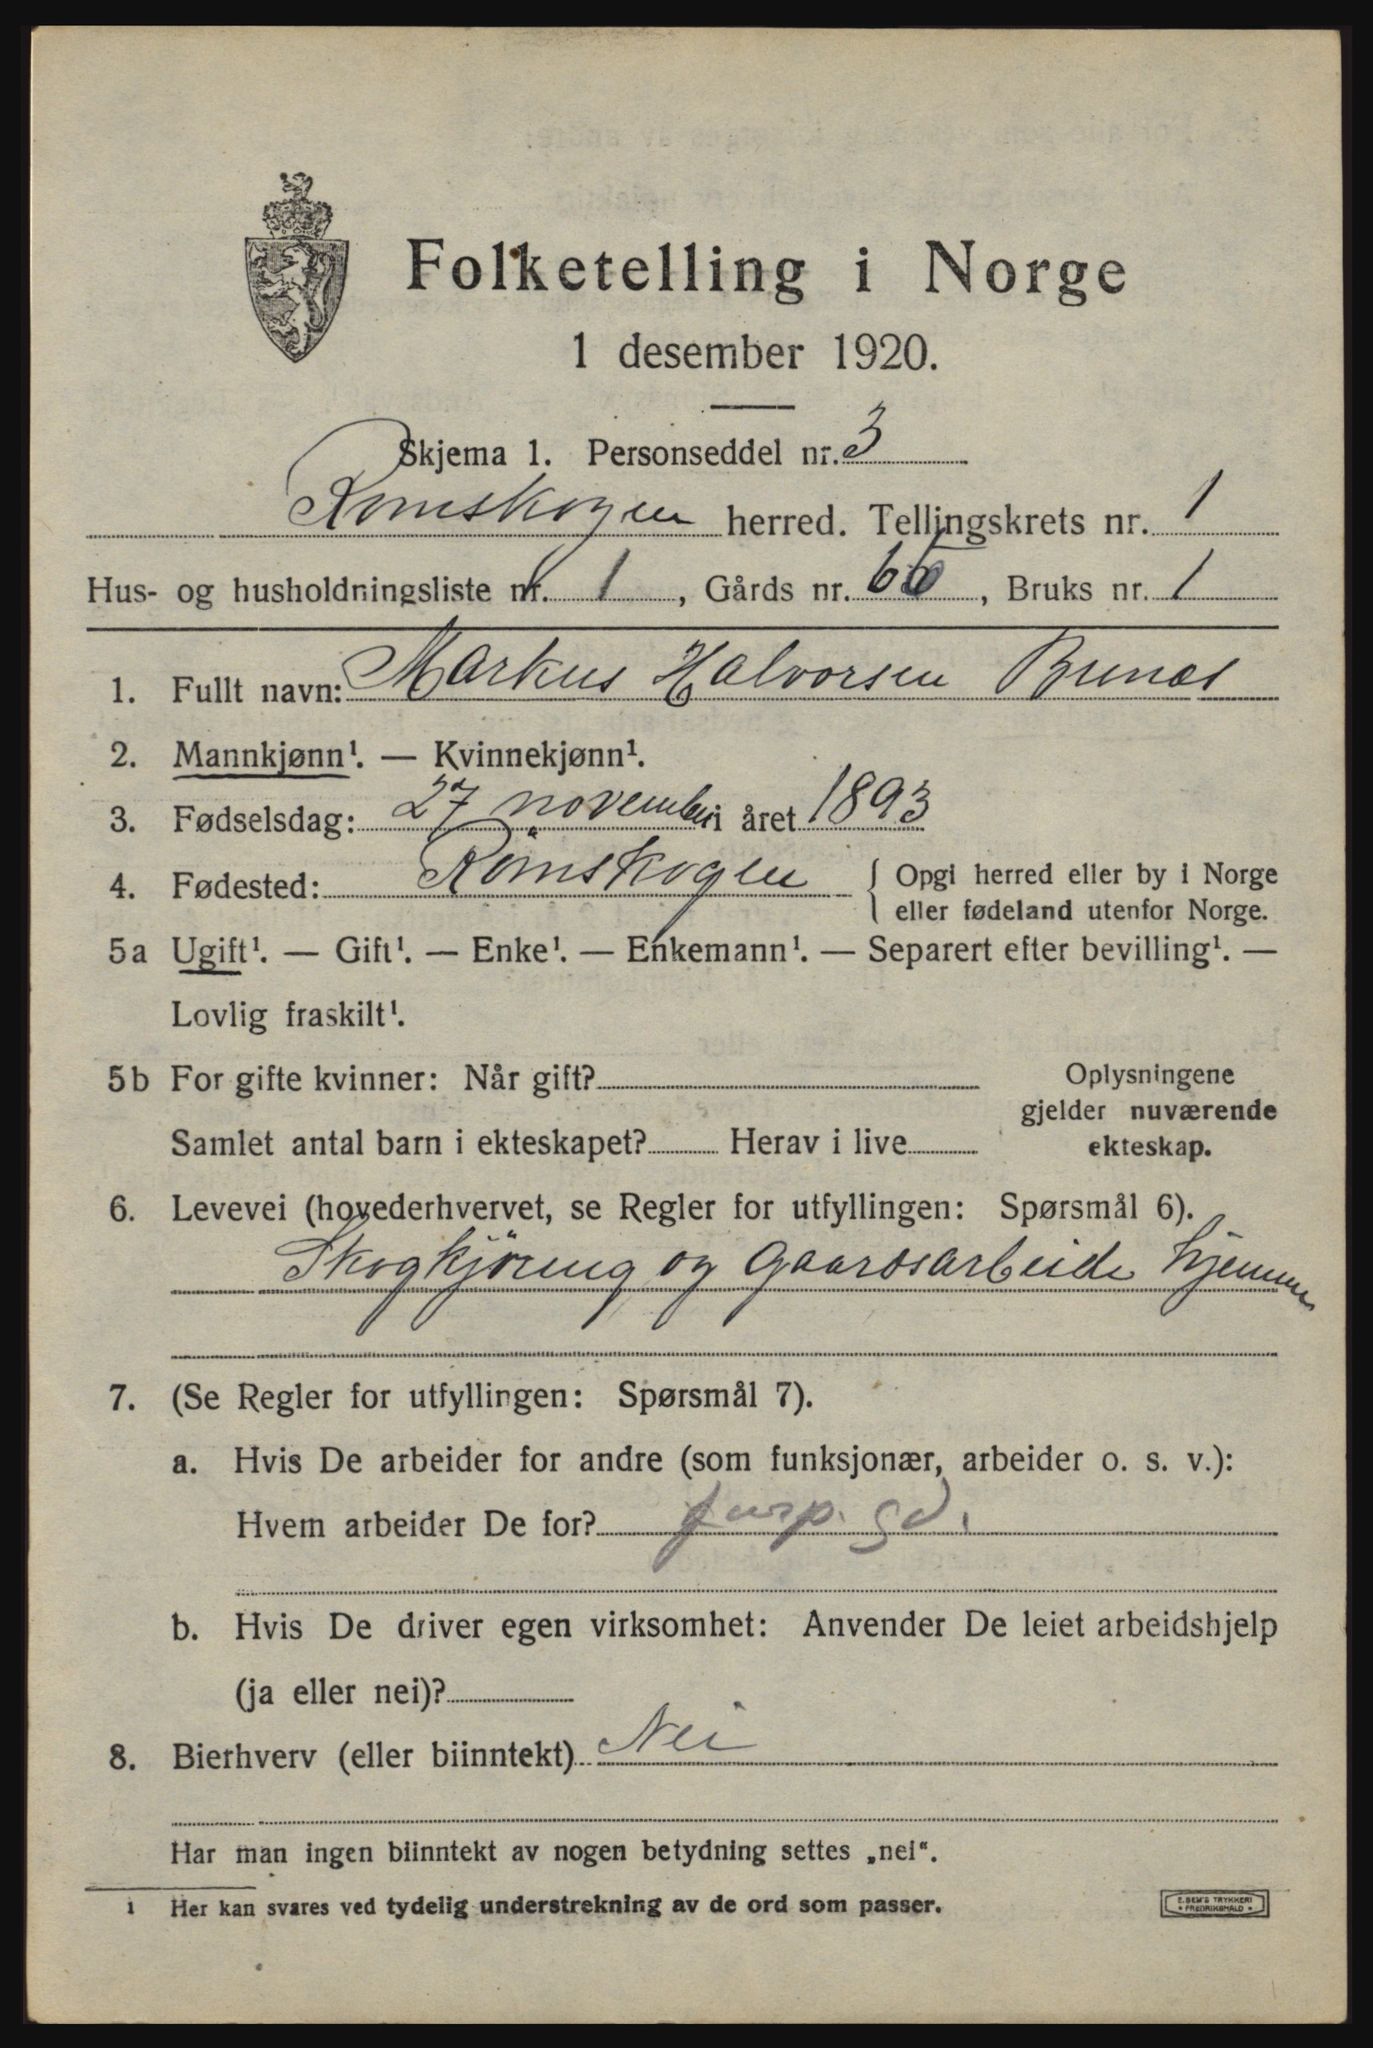 Folketelling i Norge
1 desember 1920.
Skjema 1. Personseddel nr. 3
Römskogen herred. Tellingskrets nr. 1
Hus- og husholdningsliste nr. 1, Gårds nr. 65, Bruks nr. 1
1. Fullt navn: Markus Halvorsen Brunæs
2. Mannkjønn¹. — Kvinnekjønn¹.
3. Fødselsdag: 27 november i året 1893
4. Fødested: Römskogen { Opgi herred eller by i Norge
eller fødeland utenfor Norge.
5a Ugift¹. — Gift¹. — Enke¹. — Enkemann¹. — Separert efter bevilling¹. —
Lovlig fraskilt¹.
5b For gifte kvinner: Når gift? Oplysningene
gjelder nuværende
Samlet antal barn i ekteskapet? Herav i live ekteskap.
6. Levevei (hovederhvervet, se Regler for utfyllingen: Spørsmål 6).
Skogkjöring og Gaardsarbeide hjemme
7. (Se Regler for utfyllingen: Spørsmål 7).
a. Hvis De arbeider for andre (som funksjonær, arbeider o. s. v.):
Hvem arbeider De for? gd.
b. Hvis De driver egen virksomhet: Anvender De leiet arbeidshjelp
(ja eller nei)?
8. Bierhverv (eller biinntekt) Nei
Har man ingen biinntekt av nogen betydning settes „nei“.
1 Her kan svares ved tydelig understrekning av de ord som passer.
E. SEM'S TRYKKERI
FREDRIKSHALD